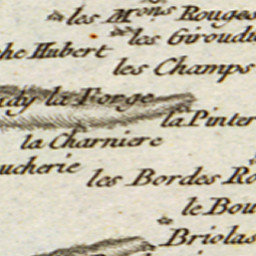 les M.ons Rouges
les Giroudi
he Hubert
les Champs
dy la Forge
la Pinter
la Charniere
ucherie
les Bordes Ro
le Bou
Briolas